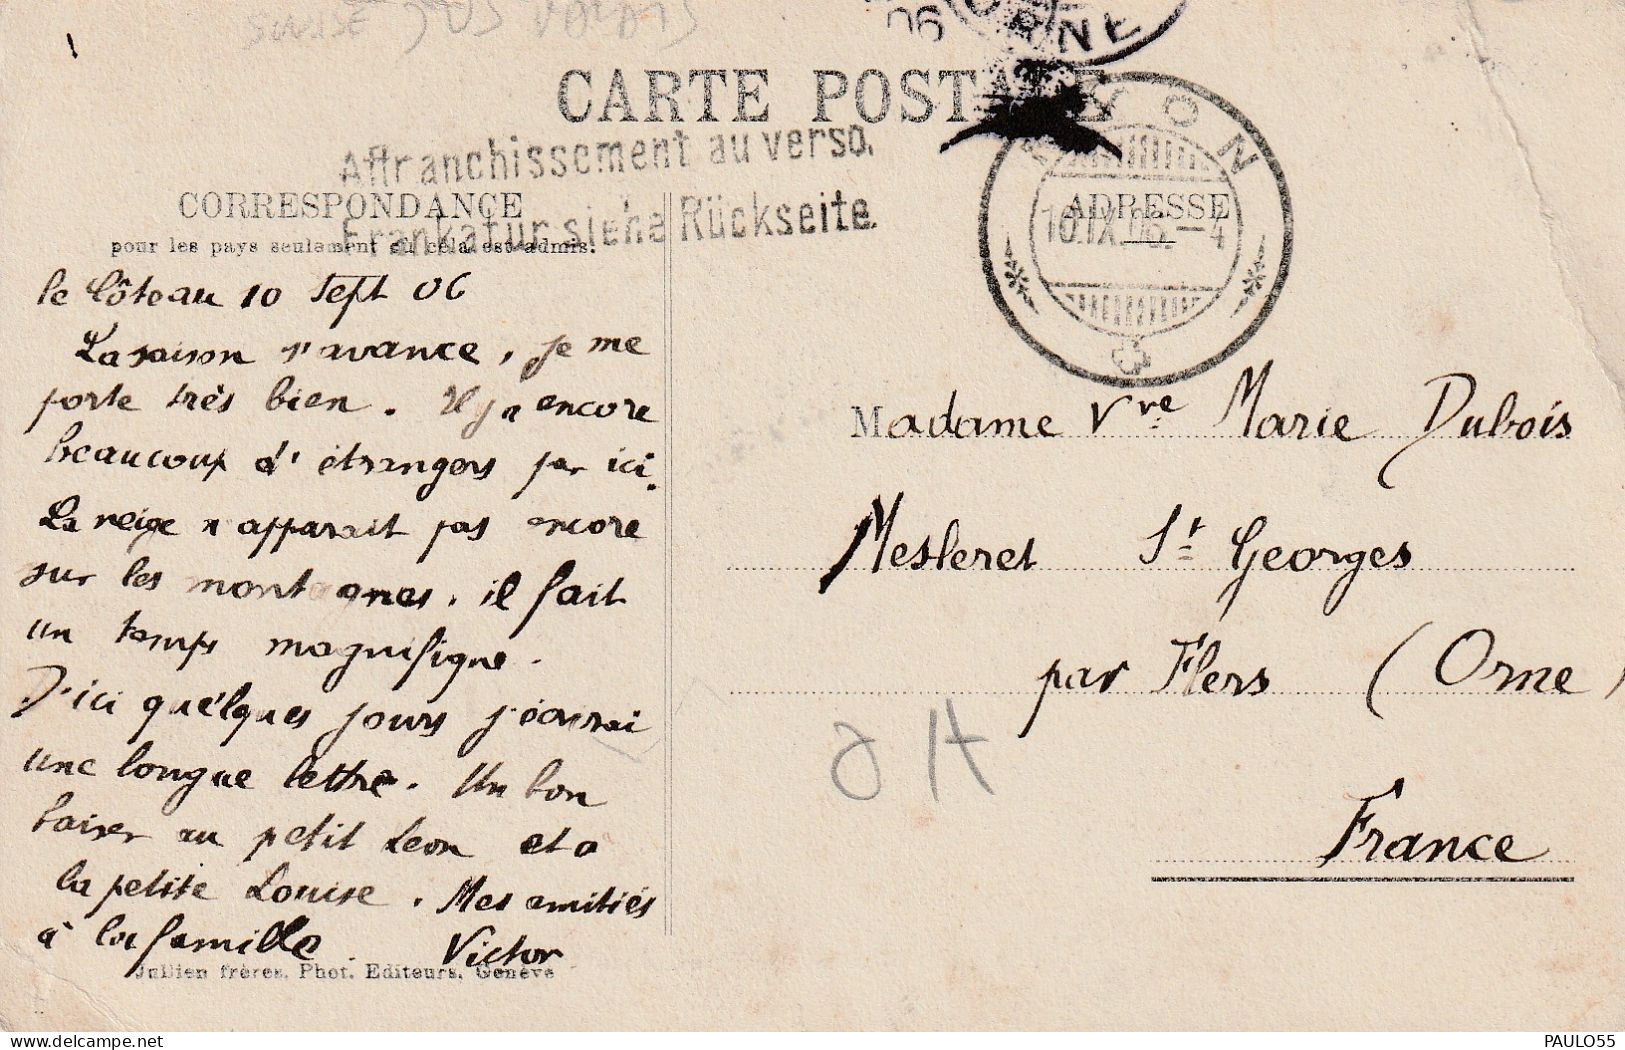 CARTE POSTALE
Affranchissement au verso.
Frankatur siehe Rückseite.
CORRESPONDANCE
pour les pays seulement où cela est admis.
ADRESSE
NYON
10.IX.06.-4
le Côteau 10 Sept 06
La saison s'avance, je me
porte très bien. Il y a encore
beaucoup d'étrangers par ici.
La neige n'apparait pas encore
sur les montagnes. il fait
un temps magnifique.
D'ici quelques jours j'écrirai
une longue lettre. Un bon
baiser au petit Leon et a
la petite Louise. Mes amitiés
à la famille.
Victor
Jullien frères, Phot. Editeurs, Genève
Madame Vve Marie Dubois
Mesleret St Georges
par Flers (Orne)
France
PAULO55